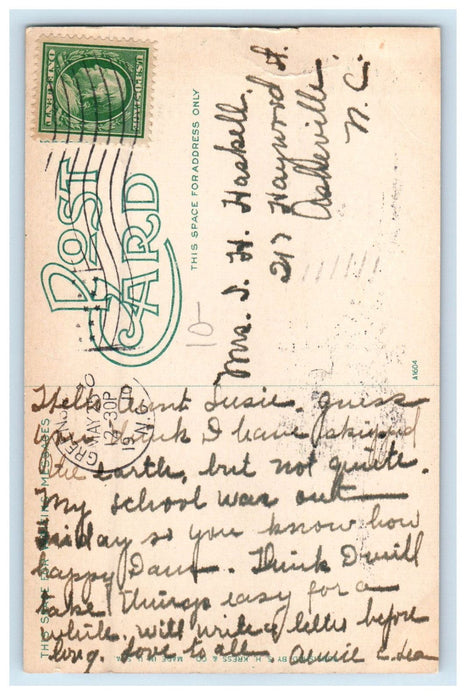 POST CARD
THIS SPACE FOR ADDRESS ONLY
Mrs. J. H. Haskell,
217 Haywood St.
Asheville
N. C.
10-
A1604
MAY 23
12-30P
1910
N.C.
Hello Aunt Susie. guess
you think I have skipped
the earth, but not quite.
My school was out
Friday so you know how
happy I am. Think I will
take things easy for a
while. will write a letter before
long. Love to all
THIS SPACE FOR WRITING MESSAGES
H. KRESS & CO. MADE IN U.S.A.